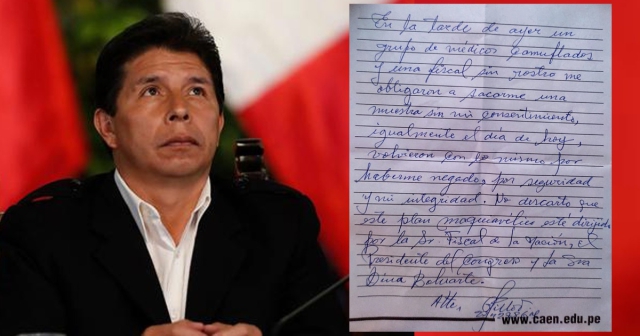 En la tarde de ayer un
grupo de médicos camuflados
y una fiscal sin rostro me
obligaron a sacarme una
muestra sin mi consentimiento,
igualmente el día de hoy,
volvieron con lo mismo por
haberme negado, por seguridad
y mi integridad. No descarto que
este plan maquiavélico esté dirigido
por la Sr. Fiscal de la Nación, el
Presidente del Congreso y la Sra
Dina Boluarte.
Atte.
www.caen.edu.pe